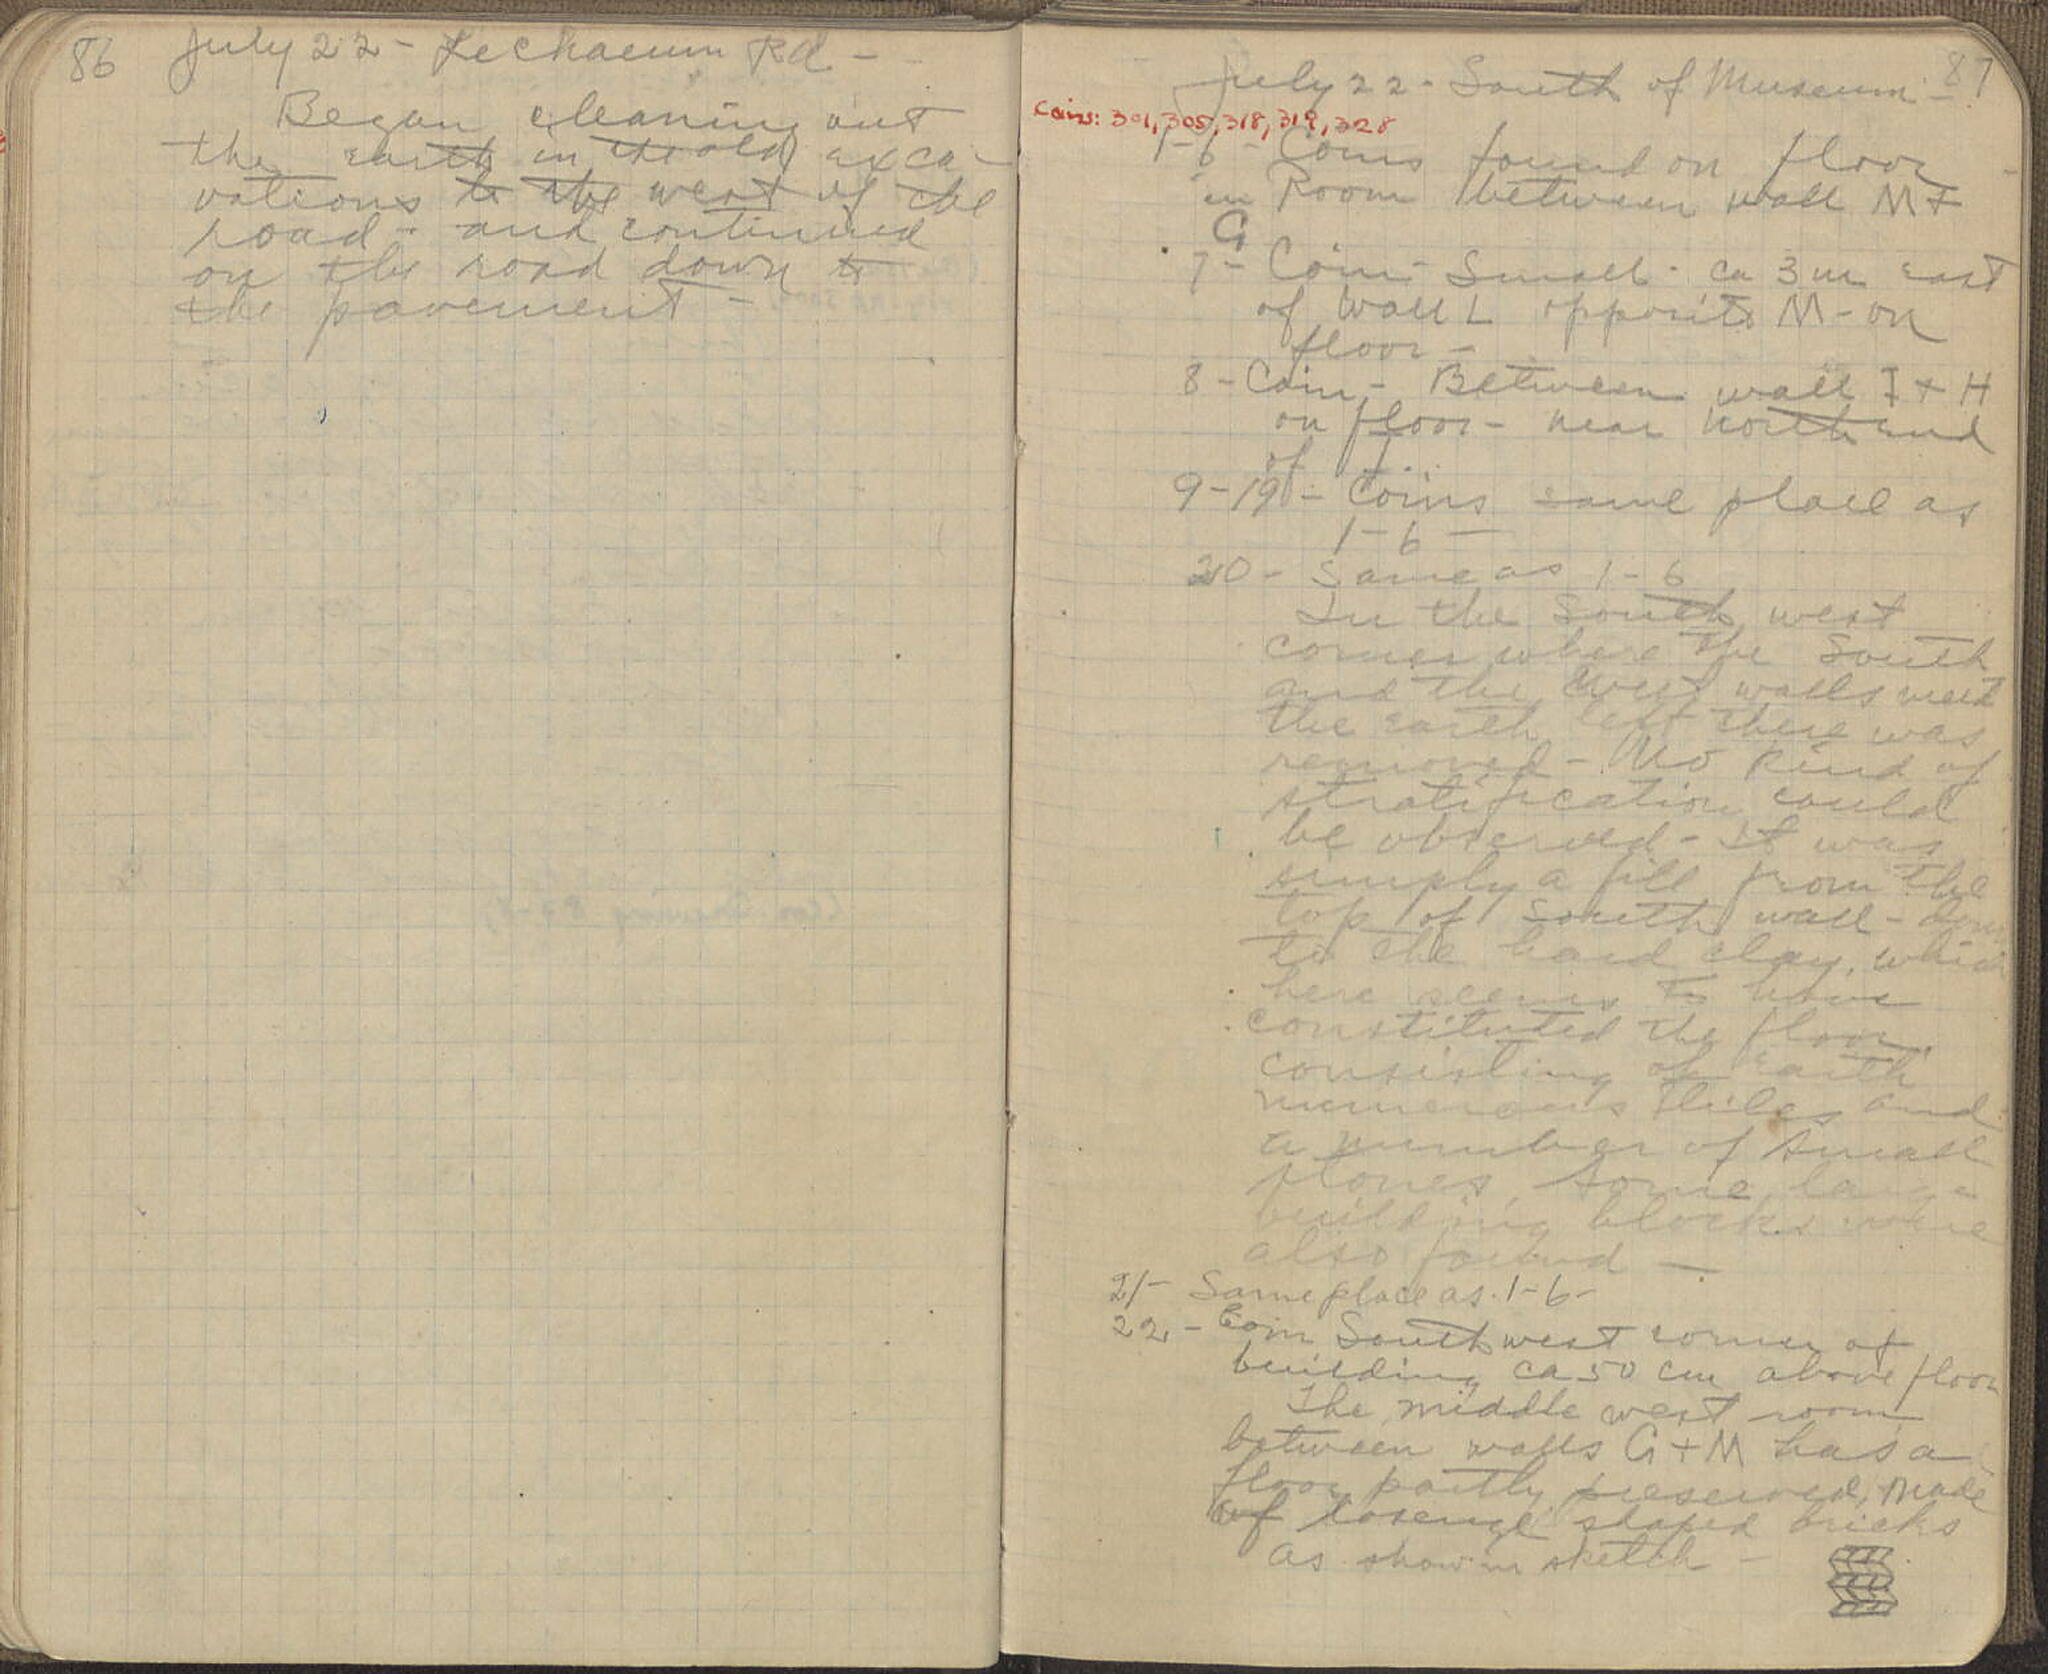 86 July 22 - Lechaeum Rd -
Began cleaning out
the earth in the old exca-
vations to the west of the
road - and continued
on the road down to
the pavement -
87
July 22 - South of Museum -
Coins: 301, 305, 318, 319, 328
1-6 - Coins found on floor
in Room between wall M +
G
7 - Coin - Small - ca 3 m east
of wall L opposite M - on
floor -
8 - Coin - Between wall I + H
on floor - near north end
of I
9-19 - Coins same place as
1-6 -
20 - Same as 1-6
In the South west
corner where the South
and the west walls meet
the earth left there was
removed - No kind of
stratification could
be observed - It was
simply a fill from the
top of South wall - down
to the hard clay, which
here seems to have
constituted the floor,
consisting of earth
numerous tiles and
a number of small
stones, some large
building blocks were
also found -
21 - Same place as 1-6 -
22 - Coin South west corner of
building ca 50 cm above floor
The middle west room
between walls G + M has a
floor partly preserved, made
of losenge shaped bricks
as show in sketch -